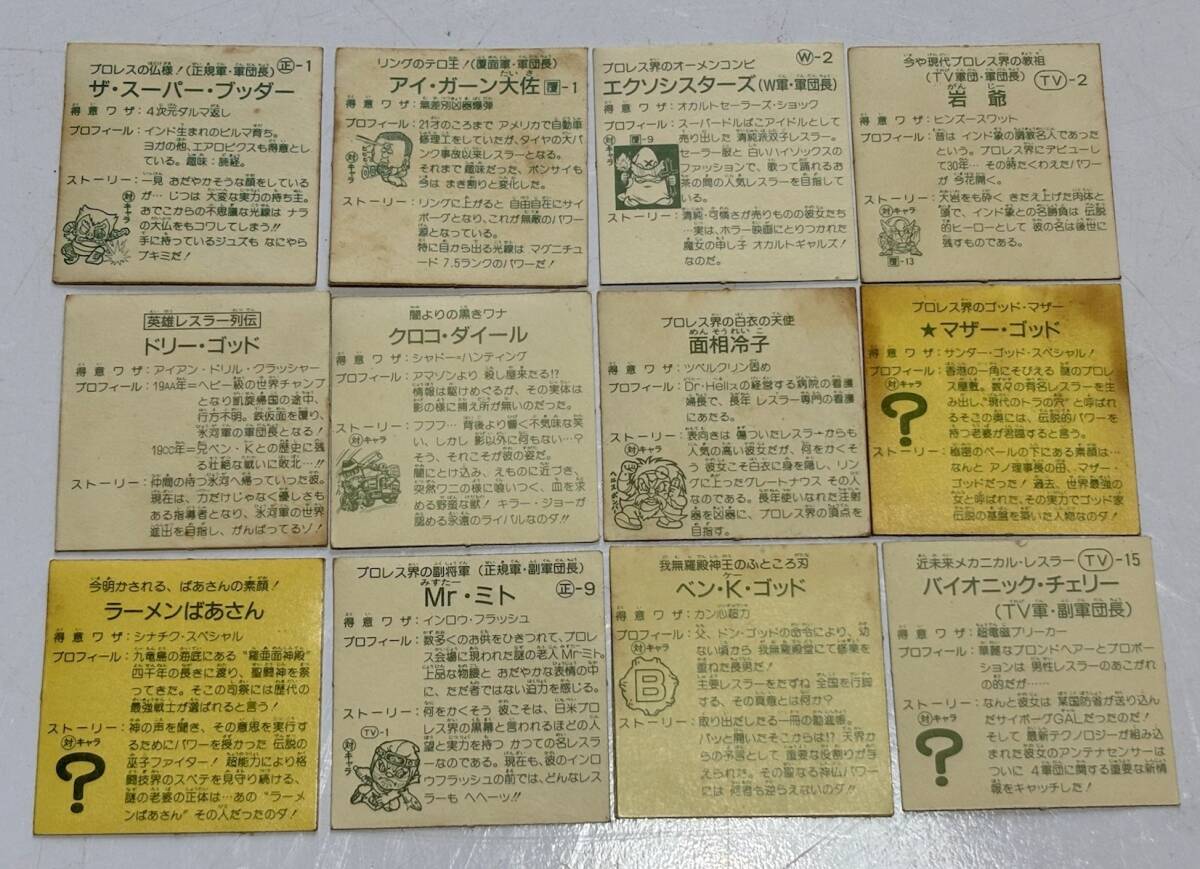 プロレスの仏様!(正規軍・軍団長) 正-1
ザ・スーパー・ブッダー
得意ワザ:4次元ダルマ返し
プロフィール:インド生まれのビルマ育ち。
ヨガの他、エアロビクスも得意と
している。趣味:読経。
ストーリー:一見 おだやかそうな顔をしている
が… じつは 大変な実力の持ち主。
おでこからの不思議な光線は ナラ
の大仏をもコワしてしまう!!
手に持っているジュズも なにやら
ブキミだ!
対キャラ
リングのテロ王!(覆面軍・軍団長) 覆-1
アイ・ガーン大佐
得意ワザ:無差別凶器爆弾
プロフィール:21才のころまで アメリカで自動車
修理工をしていたが、タイヤの大パ
ンク事故以来レスラーとなる。
それまで 趣味だった、ボンサイも
今は まき割りと変化した。
ストーリー:リングに上がると 自由自在にサイ
ボーグとなり、これが無敵のパワー
源となっている。
特に目から出る光線は マグニチュ
ード 7.5ランクのパワーだ!
対キャラ
プロレス界のオーメンコンビ W-2
エクソシスターズ(W軍・軍団長)
得意ワザ:オカルトセーラーズ・ショック
プロフィール:スーパードルばこアイドルとして
売り出した 清純派双子レスラー。
セーラー服と 白いハイソックスの
ファッションで、歌って踊れるお
茶の間の人気レスラーを目指して
いる。
ストーリー:清純・可憐さが売りものの彼女たち
…実は、ホラー映画にとりつかれた
魔女の申し子 オカルトギャルズ!
なのだ。
対キャラ
覆-9
今や現代プロレス界の教祖
(TV軍団・軍団長) TV-2
岩爺
得意ワザ:ヒンズースワット
プロフィール:昔は インド象の調教名人であった
という。プロレス界にデビューし
て30年… その時たくわえたパワー
が 今花開く。
ストーリー:大岩をも砕く きたえ上げた肉体と
頭で、インド象との名勝負は 伝説
的ヒーローとして 彼の名は後世に
残すものである。
対キャラ
覆-13
英雄レスラー列伝
ドリー・ゴッド
得意ワザ:アイアン・ドリル・クラッシャー
プロフィール:19AA年=ヘビー級の世界チャンプ
となり凱旋帰国の途中、
行方不明。鉄仮面を覆り、
氷河軍の軍団長となる!
19CC年=兄ベン・Kとの歴史に残
る壮絶な戦いに敗北…!!
ストーリー:仲間の待つ氷河へ帰っていった彼。
現在は、力だけじゃなく優しさも
ある指導者となり、氷河軍の世界
進出を目指し、がんばってるゾ!
闇よりの黒きワナ
クロコ・ダイール
得意ワザ:シャドー=ハンティング
プロフィール:アマゾンより 殺し屋来たる!?
情報は駆けめぐるが、その実体は
影の様に捕え所が無いのだった。
ストーリー:フフフ… 背後より響く不気味な笑
い、しかし 影以外に何もない…?
そう、それこそが彼の姿だ。
闇にとけ込み、えものに近づき、
突然ワニの様に喰いつく、血を求
める野蛮な獣! キラー・ジョーが
認める永遠のライバルなのダ!!
対キャラ
プロレス界の白衣の天使
面相冷子
得意ワザ:ツベルクリン固め
プロフィール:Dr・Helixの経営する病院の看護
婦長で、長年 レスラー専門の看護
にあたる。
ストーリー:表向きは 傷ついたレスラーからも
人気の高い彼女だが、何をかくそ
う 彼女こそ白衣に身を隠し、リン
グに上ったグレートナウス その人
なのである。長年使いなれた注射
器を凶器に、プロレス界の頂点を
目指す。
対キャラ
プロレス界のゴッド・マザー
★マザー・ゴッド
得意ワザ:サンダー・ゴッド・スペシャル!
プロフィール:香港の一角にそびえる 謎のプロレ
ス屋敷。数々の有名レスラーを生
み出し、“現代のトラの穴”と呼ばれ
るそこの奥には、伝説的パワーを
持つ老婆が君臨すると言う。
ストーリー:極密のベールの下にある素顔は…
なんと アノ理事長の母、マザー・
ゴッドだった! 過去、世界最強の
女と呼ばれた、その実力でゴッド家
伝説の基盤を築いた人物なのダ!
対キャラ
?
今明かされる、ばあさんの素顔!
ラーメンばあさん
得意ワザ:シナチク・スペシャル
プロフィール:九竜島の海底にある“羅亜面神殿”
四千年の長きに渡り、聖闘神を祭
ってきた。そこの司祭には歴代の
最強戦士が選ばれると言う!
ストーリー:神の声を聞き、その意思を実行す
るためにパワーを授かった 伝説の
巫子ファイター! 超能力により格
闘技界のスベテを見守り続ける、
謎の老婆の正体は…あの“ラーメ
ンばあさん”その人だったのダ!
対キャラ
?
プロレス界の副将軍 (正規軍・副軍団長) 正-9
Mr・ミト
得意ワザ:インロウ・フラッシュ
プロフィール:数多くのお供をひきつれて、プロレ
ス会場に現われた謎の老人Mr・ミト。
上品な物腰と おだやかな表情の中
に、ただ者ではない迫力を感じる。
ストーリー:何をかくそう 彼こそは、日米プロ
レス界の黒幕と言われるほどの人
望と実力を持つ かつての名レスラ
ーなのである。現在も、彼のインロ
ウフラッシュの前では、どんなレス
ラーも ヘヘーッ!!
TV-1
対キャラ
我無羅殿神王のふところ刃
ベン・K・ゴッド
得意ワザ:カン心超力
プロフィール:父、ドン・ゴッドの命令により、幼
ない頃から 我無羅殿堂にて修業を
重ねた長男だ!
主要レスラーをたずね 全国を行脚
する、その真意とは何か?
ストーリー:取り出したる一冊の勧進帳。
パッと開いたそこからは!? 天界か
らの予言として 重要な役割りが与
えられた。その聖なる神仏パワー
には 何者も逆らえないのダ!!
対キャラ
B
近未来メカニカル・レスラー TV-15
バイオニック・チェリー
(TV軍・副軍団長)
得意ワザ:超電磁ブリーカー
プロフィール:華麗なブロンドヘアーとプロポー
ションは 男性レスラーのあこがれ
の的だが……
ストーリー:なんと彼女は 某国防省が送り込ん
だサイボーグGALだったのだ!
そして 最新テクノロジーが組み込
まれた彼女のアンテナセンサーは
ついに 4軍団に関する重要な新情
報をキャッチした!
対キャラ
?